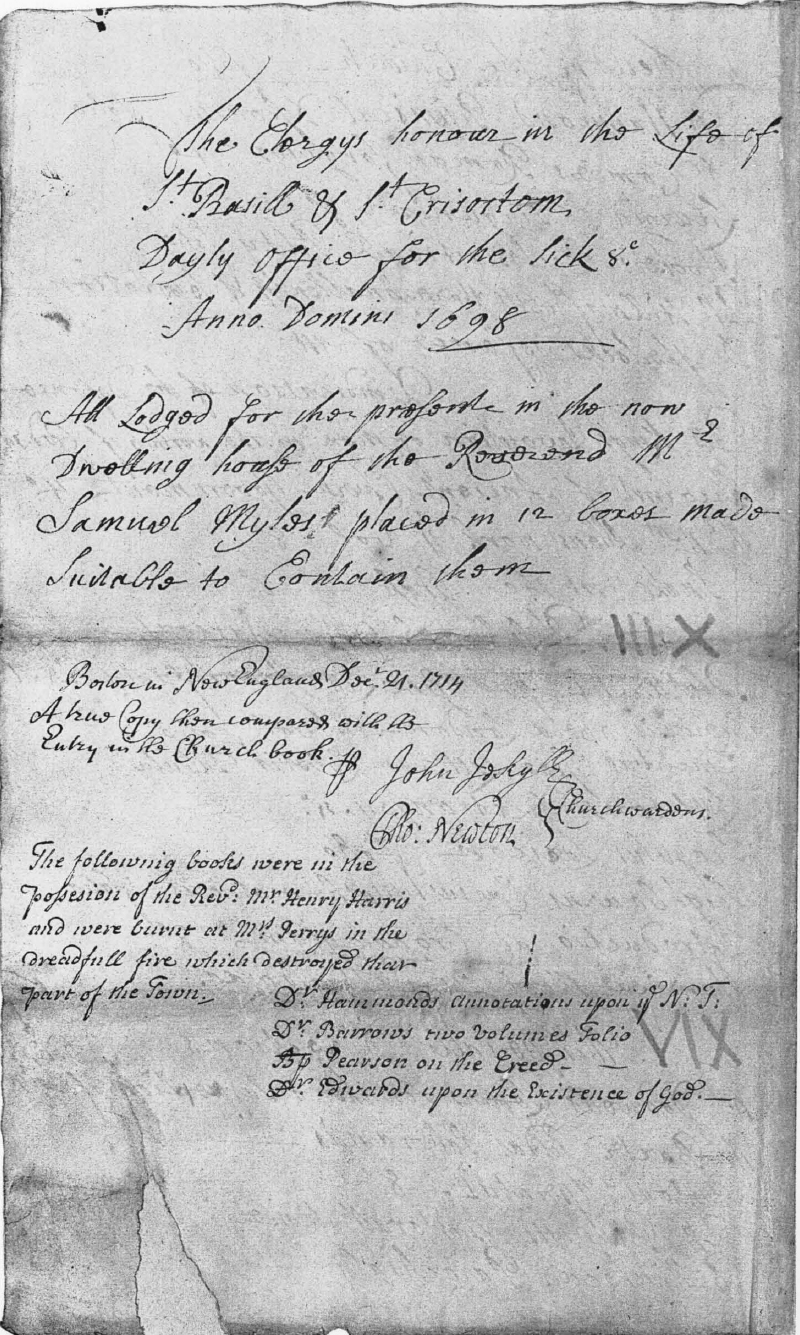 The Clergys honour in the Life of
St Basill & St Crisostom
Dayly office for the Sick &c
Anno Domini 1698
All Lodged for the present in the now
Dwelling house of the Reverend Mr
Samuel Myles placed in 12 boxes made
Suitable to Contain them
XIII
Boston in New England Decr. 21. 1714
A true Copy then compared with the
Entry in the Church book.
John Jekyll
Tho: Newton
Churchwardens.
The followinig books were in the
possesion of the Revd: Mr Henry Harris
and were burnt at Mrs Perrys in the
dreadfull fire which destroyed that
part of the Town.
Dr. Hammonds Annotations upon ye N: T:
Dr. Barrows two Volumes Folio
Bp Pearson on the Creed.
Dr. Edwards upon the Existence of God.
XIV